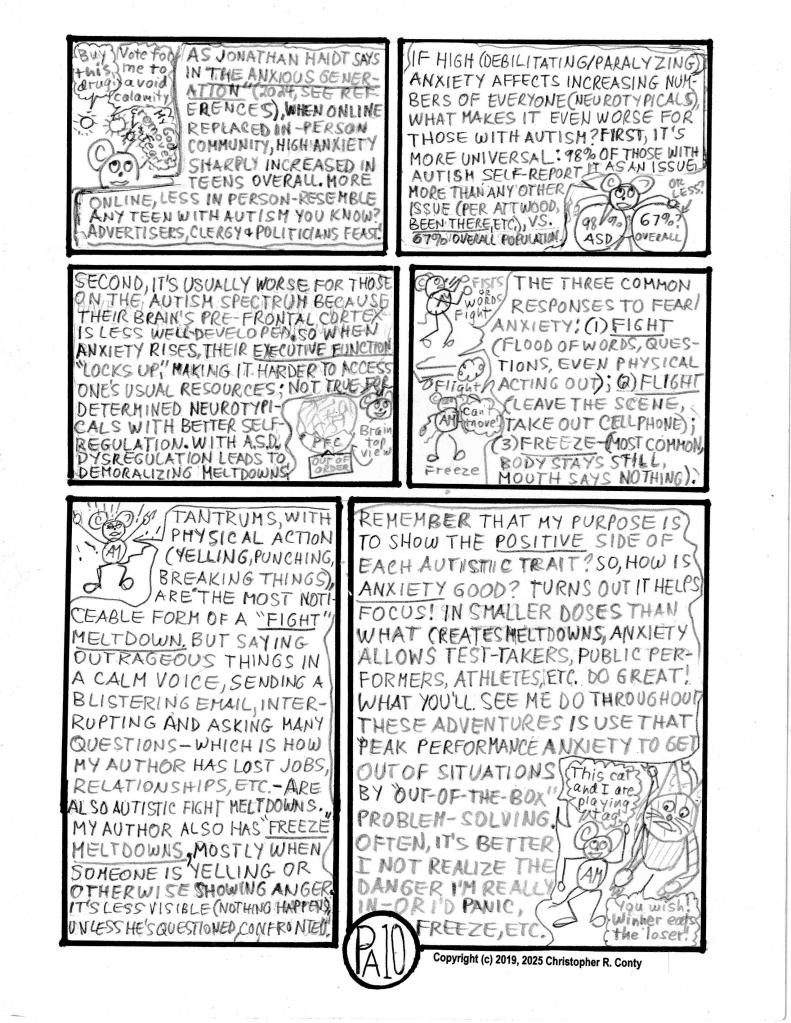 Buy this drug!
Vote for me to avoid calamity
Hi, God removes fears
AS JONATHAN HAIDT SAYS
IN "THE ANXIOUS GENER-
ATION" (2024, SEE REF-
ERENCES), WHEN ONLINE
REPLACED IN-PERSON
COMMUNITY, HIGH ANXIETY
SHARPLY INCREASED IN
TEENS OVERALL. MORE
ONLINE, LESS IN PERSON-RESEMBLE
ANY TEEN WITH AUTISM YOU KNOW?
ADVERTISERS, CLERGY & POLITICIANS FEAST!
IF HIGH (DEBILITATING/PARALYZING)
ANXIETY AFFECTS INCREASING NUM-
BERS OF EVERYONE (NEUROTYPICALS),
WHAT MAKES IT EVEN WORSE FOR
THOSE WITH AUTISM? FIRST, IT'S
MORE UNIVERSAL: 98% OF THOSE WITH
AUTISM SELF-REPORT IT AS AN ISSUE
MORE THAN ANY OTHER
ISSUE (PER ATTWOOD,
BEEN THERE, ETC), VS.
67% OVERALL POPULATION!
OR LESS?
98%
ASD
67%?
OVERALL
SECOND, IT'S USUALLY WORSE FOR THOSE
ON THE AUTISM SPECTRUM BECAUSE
THEIR BRAIN'S PRE-FRONTAL CORTEX
IS LESS WELL-DEVELOPED. SO WHEN
ANXIETY RISES, THEIR EXECUTIVE FUNCTION
"LOCKS UP," MAKING IT HARDER TO ACCESS
ONE'S USUAL RESOURCES; NOT TRUE FOR
DETERMINED NEUROTYPI-
CALS WITH BETTER SELF-
REGULATION. WITH A.S.D.,
DYSREGULATION LEADS TO
DEMORALIZING MELTDOWNS!
PFC
OUT OF
ORDER
Brain
top
view
FISTS
OR
WORDS
Fight
Flight
AM
Can't
move!
Freeze
THE THREE COMMON
RESPONSES TO FEAR/
ANXIETY: (1) FIGHT
(FLOOD OF WORDS, QUES-
TIONS, EVEN PHYSICAL
ACTING OUT); (2) FLIGHT
(LEAVE THE SCENE,
TAKE OUT CELLPHONE);
(3) FREEZE-(MOST COMMON,
BODY STAYS STILL,
MOUTH SAYS NOTHING).
AM
TANTRUMS, WITH
PHYSICAL ACTION
(YELLING, PUNCHING,
BREAKING THINGS),
ARE THE MOST NOTI-
CEABLE FORM OF A "FIGHT"
MELTDOWN. BUT SAYING
OUTRAGEOUS THINGS IN
A CALM VOICE, SENDING A
BLISTERING EMAIL, INTER-
RUPTING AND ASKING MANY
QUESTIONS-WHICH IS HOW
MY AUTHOR HAS LOST JOBS,
RELATIONSHIPS, ETC.-ARE
ALSO AUTISTIC FIGHT MELTDOWNS.
MY AUTHOR ALSO HAS "FREEZE"
MELTDOWNS, MOSTLY WHEN
SOMEONE IS YELLING OR
OTHERWISE SHOWING ANGER.
IT'S LESS VISIBLE (NOTHING HAPPENS)
UNLESS HE'S QUESTIONED, CONFRONTED.
REMEMBER THAT MY PURPOSE IS
TO SHOW THE POSITIVE SIDE OF
EACH AUTISTIC TRAIT? SO, HOW IS
ANXIETY GOOD? TURNS OUT IT HELPS
FOCUS! IN SMALLER DOSES THAN
WHAT CREATES MELTDOWNS, ANXIETY
ALLOWS TEST-TAKERS, PUBLIC PER-
FORMERS, ATHLETES, ETC. DO GREAT!
WHAT YOU'LL SEE ME DO THROUGHOUT
THESE ADVENTURES IS USE THAT
PEAK PERFORMANCE ANXIETY TO GET
OUT OF SITUATIONS
BY "OUT-OF-THE-BOX"
PROBLEM-SOLVING.
OFTEN, IT'S BETTER
I NOT REALIZE THE
DANGER I'M REALLY
IN-OR I'D PANIC,
FREEZE, ETC.
This cat
and I are
playing
tag!
AM
You wish!
Winner eats
the loser!
PA10
Copyright (c) 2019, 2025 Christopher R. Conty